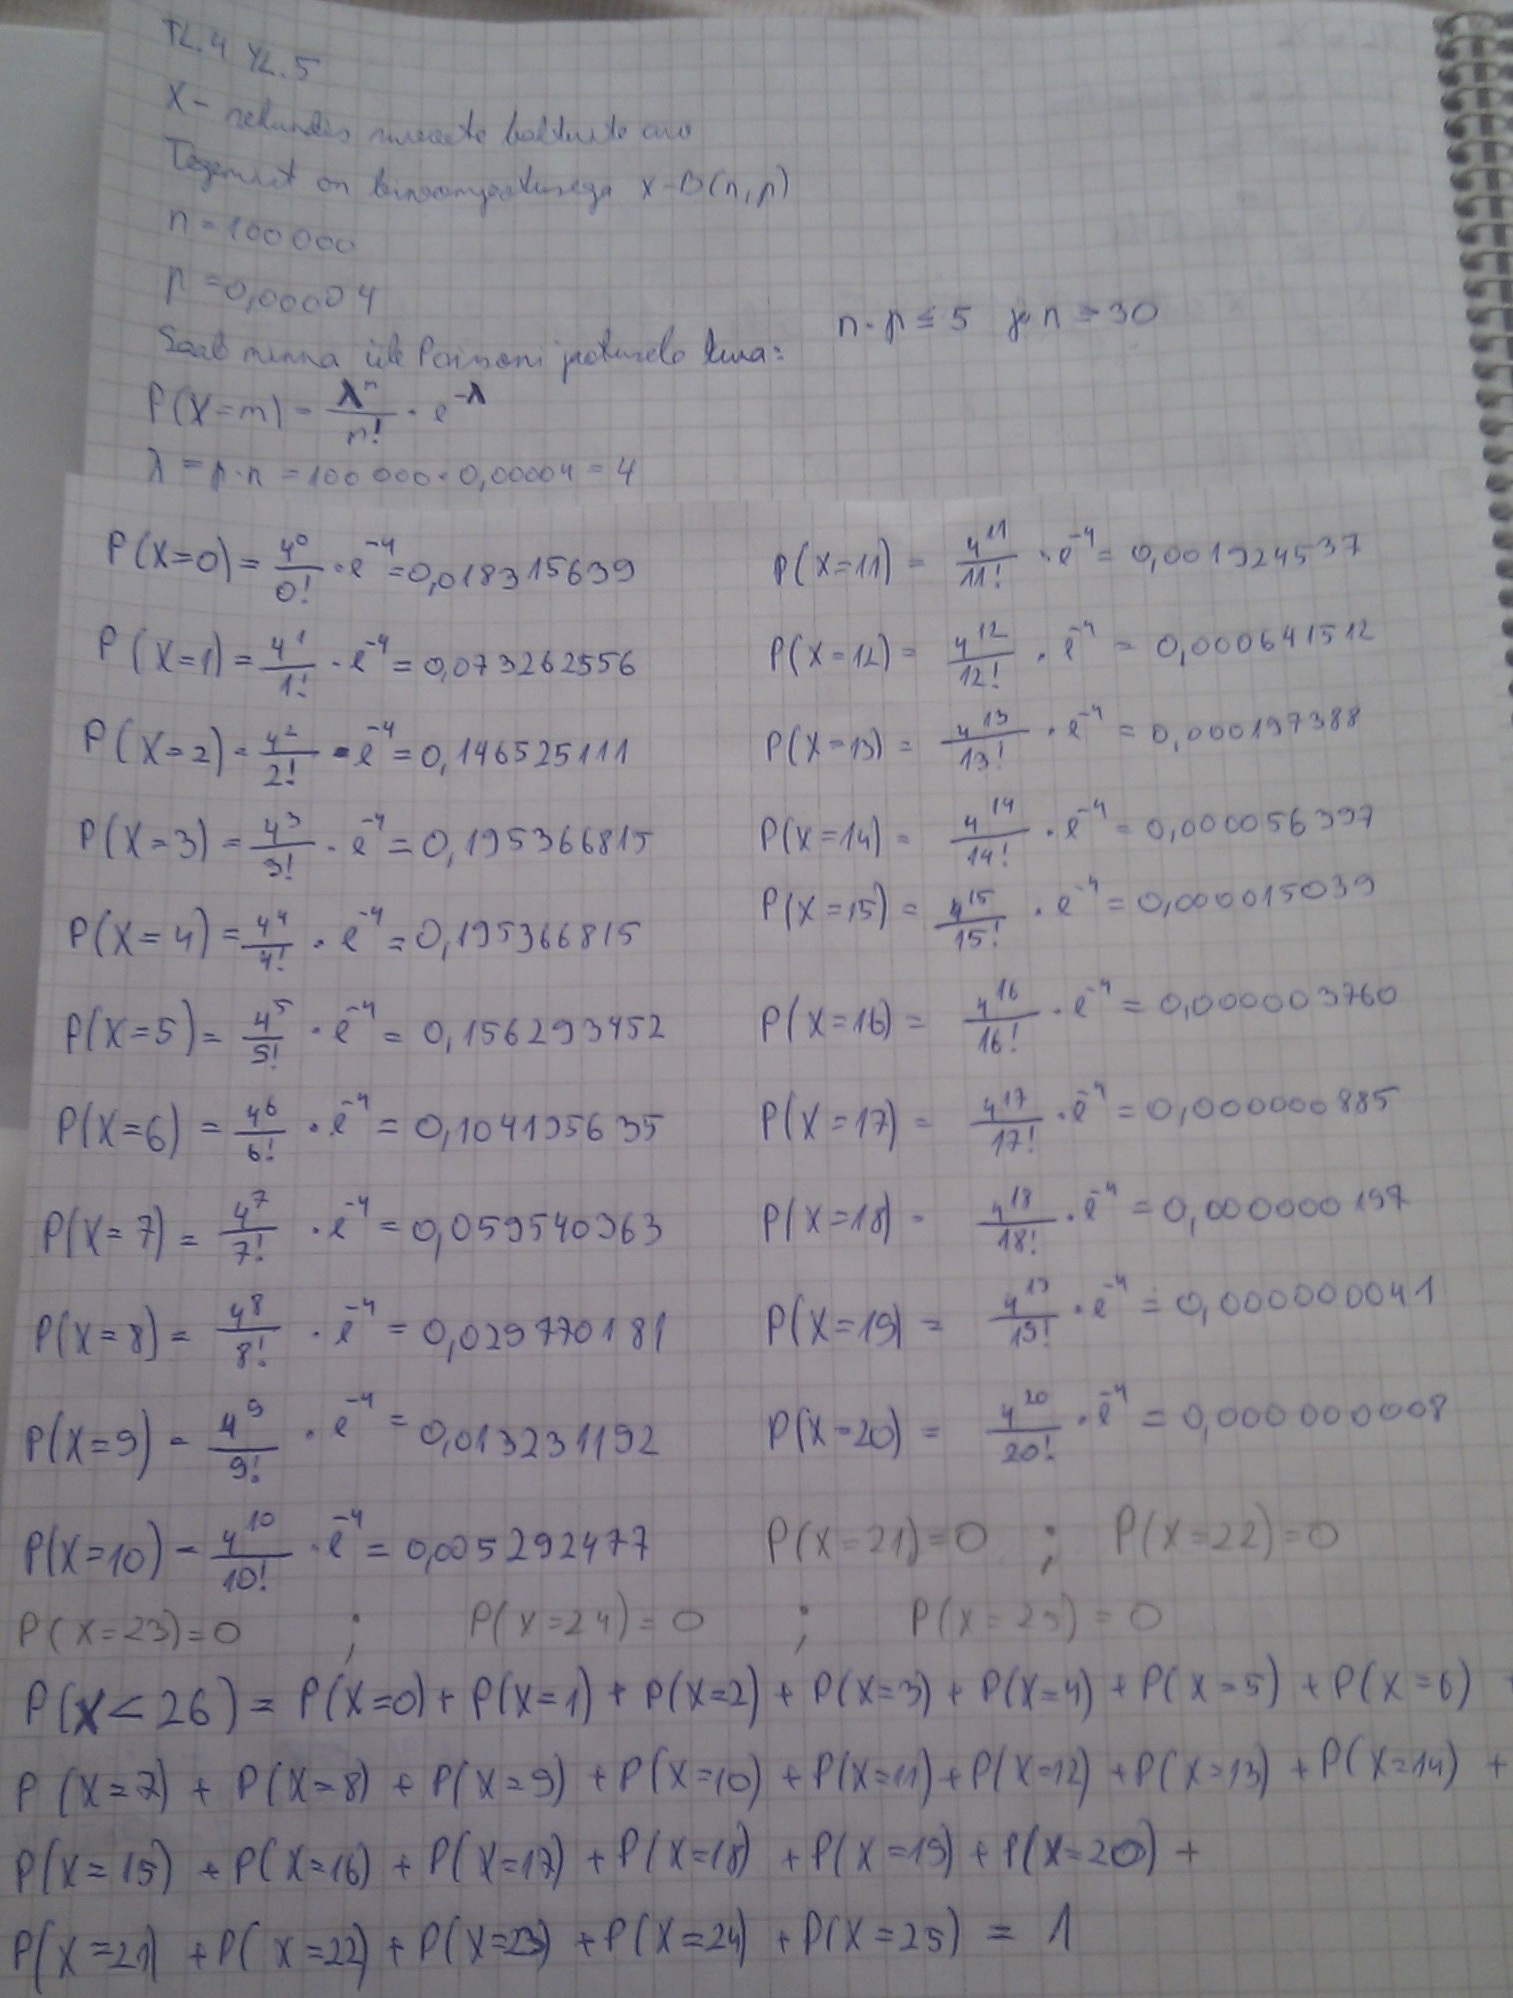 TL.4 YL.5
X - sekundis surevate bakterite arv
Tegemist on binoomjaotusega X~B(n,p)
n = 100 000
p = 0,00004
n · p ≤ 5 ja n ≥ 30
Saab minna üle Poissoni jaotusele kuna:
P(X=m) = λⁿ/n! · e^-λ
λ = p·n = 100 000 · 0,00004 = 4
P(X=0) = 4^0/0! · e^-4 = 0,018315639
P(X=1) = 4^1/1! · e^-4 = 0,073262556
P(X=2) = 4^2/2! · e^-4 = 0,146525111
P(X=3) = 4^3/3! · e^-4 = 0,195366815
P(X=4) = 4^4/4! · e^-4 = 0,195366815
P(X=5) = 4^5/5! · e^-4 = 0,156293452
P(X=6) = 4^6/6! · e^-4 = 0,104195635
P(X=7) = 4^7/7! · e^-4 = 0,059540363
P(X=8) = 4^8/8! · e^-4 = 0,029770181
P(X=9) = 4^9/9! · e^-4 = 0,013231192
P(X=10) = 4^10/10! · e^-4 = 0,005292477
P(X=11) = 4^11/11! · e^-4 = 0,001924537
P(X=12) = 4^12/12! · e^-4 = 0,000641512
P(X=13) = 4^13/13! · e^-4 = 0,000197388
P(X=14) = 4^14/14! · e^-4 = 0,000056397
P(X=15) = 4^15/15! · e^-4 = 0,000015039
P(X=16) = 4^16/16! · e^-4 = 0,000003760
P(X=17) = 4^17/17! · e^-4 = 0,000000885
P(X=18) = 4^18/18! · e^-4 = 0,000000197
P(X=19) = 4^19/19! · e^-4 = 0,000000041
P(X=20) = 4^20/20! · e^-4 = 0,000000008
P(X=21)=0 ; P(X=22)=0
P(X=23)=0 ; P(X=24)=0 ; P(X=25)=0
P(X<26) = P(X=0) + P(X=1) + P(X=2) + P(X=3) + P(X=4) + P(X=5) + P(X=6) +
P(X=7) + P(X=8) + P(X=9) + P(X=10) + P(X=11) + P(X=12) + P(X=13) + P(X=14) +
P(X=15) + P(X=16) + P(X=17) + P(X=18) + P(X=19) + P(X=20) +
P(X=21) + P(X=22) + P(X=23) + P(X=24) + P(X=25) = 1